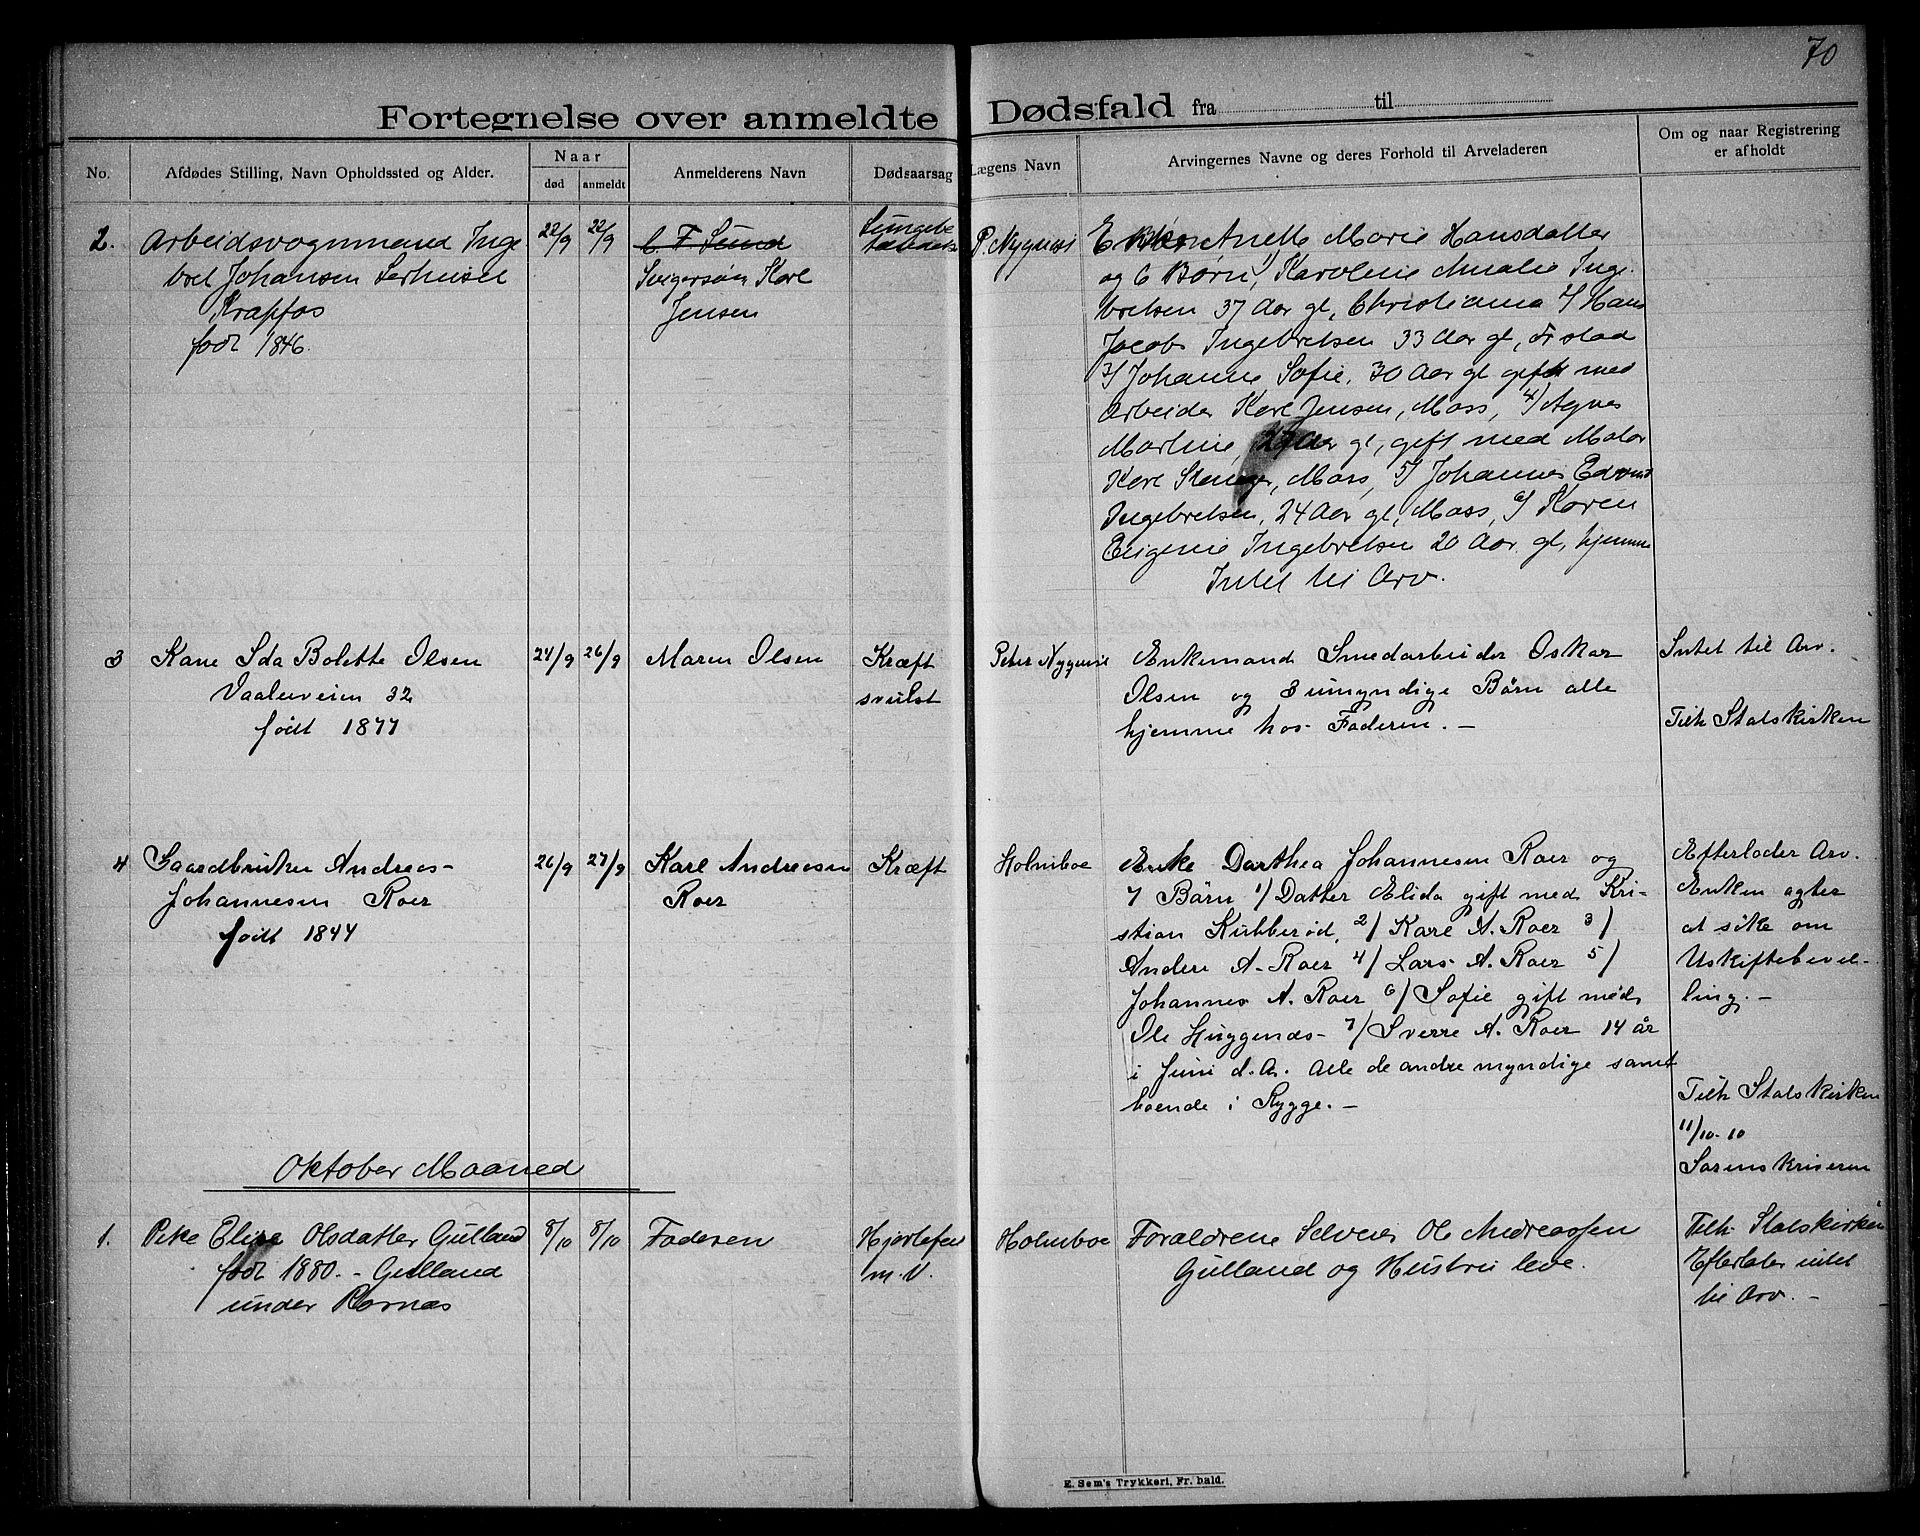 70
Fortegnelse over anmeldte Dødsfald fra til
No.
Afdødes Stilling, Navn Opholdssted og Alder.
Naar
død
anmeldt
Anmelderens Navn
Dødsaarsag
Lægens Navn
Arvingernes Navne og deres Forhold til Arveladeren
Om og naar Registrering
er afholdt
2.
Arbeidsvognmand Inge
bret Johansen
Krapfos
født 1846.
22/9
22/9
C. F. Sund
Svigersøn Karl
Jensen
P. Nygaard
Anette Marie Hansdatter
og 6 Børn, 1/ Karoline Amalie Inge
bretsen 37 Aar gl, Christiania 2/ Hans
Jacob Ingebretsen 33 Aar gl,
3/ Johanne Sofie, 30 Aar gl gift med
Arbeider Karl Jensen, Moss, 4/ Agnes
Martine, 27 Aar gl, gift med Maler
Karl, Moss, 5/ Johannes Edvind
Ingebretsen, 24 Aar gl, Moss, 6/ Karen
Eugenie Ingebretsen 20 Aar gl, hjemme
Intet til Arv.
3
Kone Ida Bolette Olsen
Vaalerveien 32
født 1877
24/9
26/9
Maren Olsen
Kræft
svulst
Peter
Enkemand Smedarbeider Oskar
Olsen og 3 umyndige Børn alle
hjemme hos Faderen. -
Intet til Arv.
Tilh Statskirken
4
Gaardbruker Andreas
Johannesen Roer
født 1844
26/9
27/9
Karl Andreasen
Roer
Kræft
Holmboe
Enke Darthea Johannesen Roer og
7 Børn 1/ Datter Elida gift med Kri-
stian Kubberød, 2/ Karl A. Roer 3/
Anders A. Roer 4/ Lars A. Roer 5/
Johannes A. Roer 6/ Sofie gift med
Ole Huggenæs 7/ Sverre A. Roer 14 år
i Juni d. A. Alle de andre myndige samt
boende i Rygge. -
Efterlader Arv.
Enken agter
at søke om
Uskiftebevil-
ling. -
Tilh Statskirken
11/10-10
Sorenskriveren
Oktober Maaned
1.
Pike Elise Olsdatter Gulland
født 1880. - Gulland
under Kornæs
8/10
8/10
Faderen
Hjertefeil
m. v.
Holmboe
Forældrene Selveier Ole Andreassen
Gulland og Hustru leve.
Tilh Statskirken
Efterlater intet
til Arv. -
E. Sem's Trykkeri, Fr. hald.